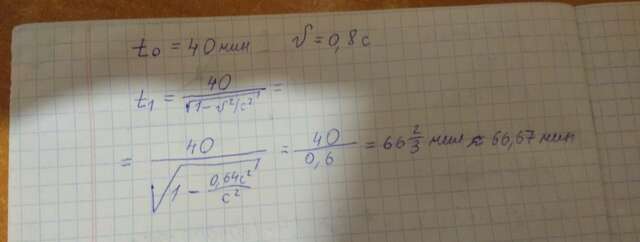 t₀ = 40 мин v = 0,8 c
t₁ = 40 / √(1 − v²/c²) =
= 40 / √(1 − 0,64c²/c²) = 40 / 0,6 = 66 2/3 мин ≈ 66,67 мин